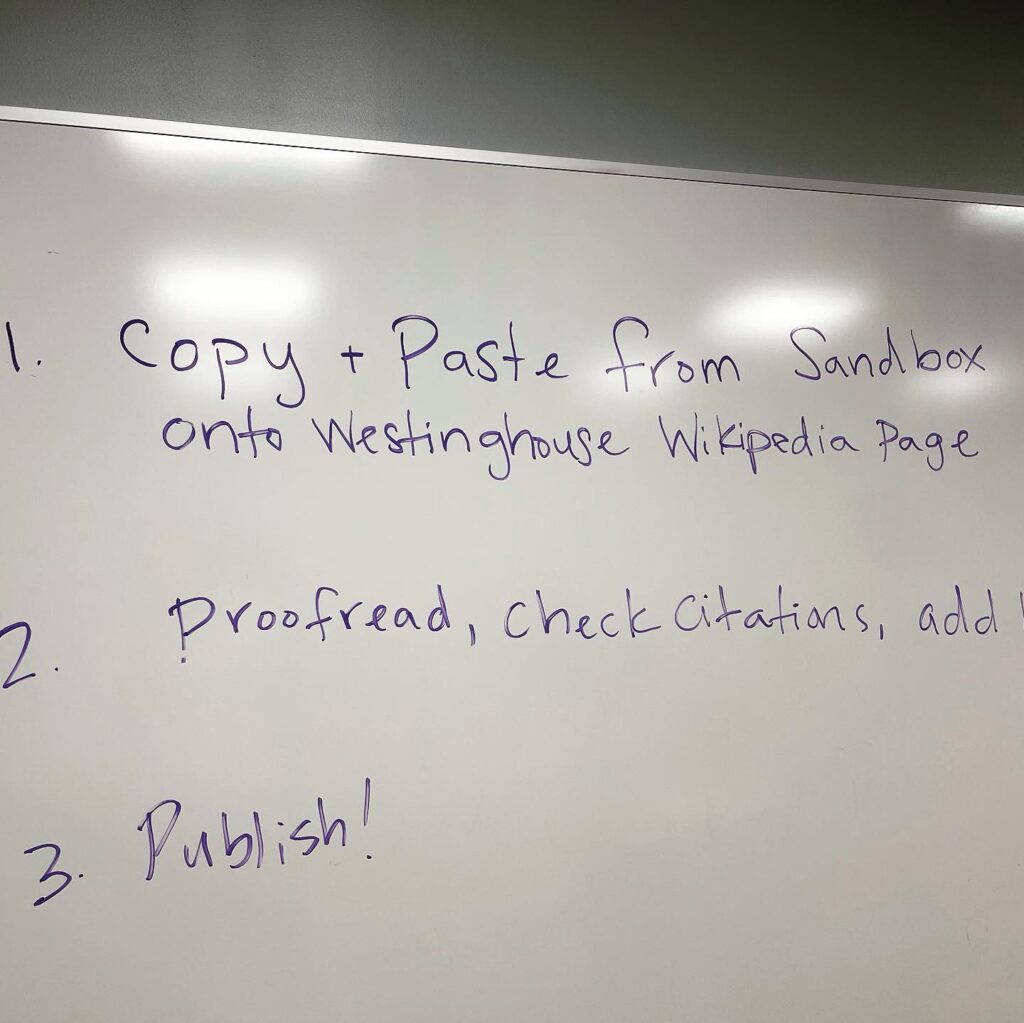 1. Copy + Paste from Sandbox
onto Westinghouse Wikipedia Page
2. Proofread, check citations, add
3. Publish!